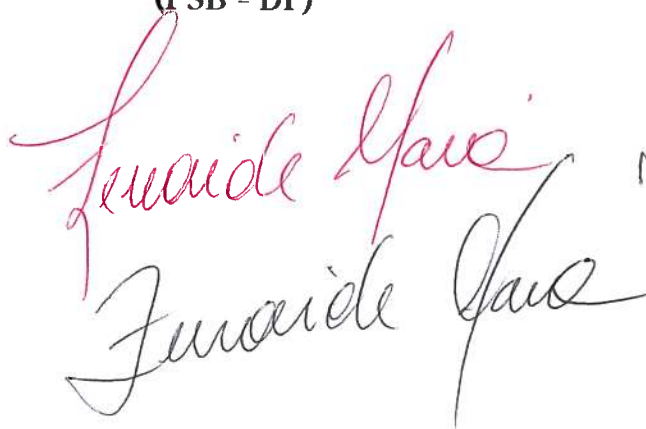 (PSB – DF)
Zenaide Maia
Zenaide Maia